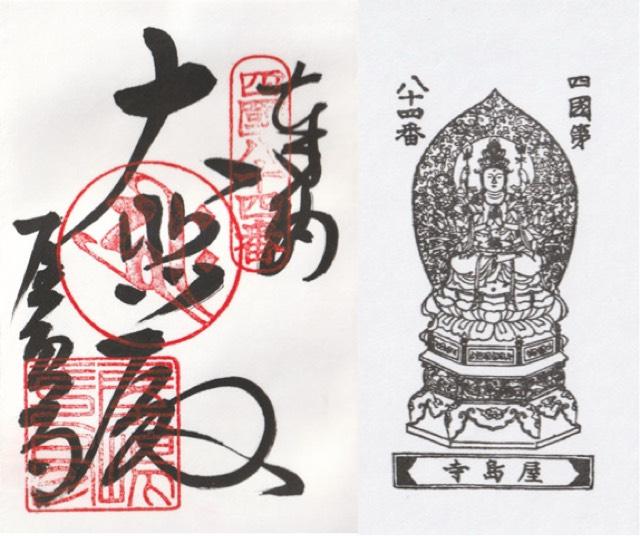 奉納
四國八十四番
大悲殿
屋島寺
四國第
八十四番
屋島寺